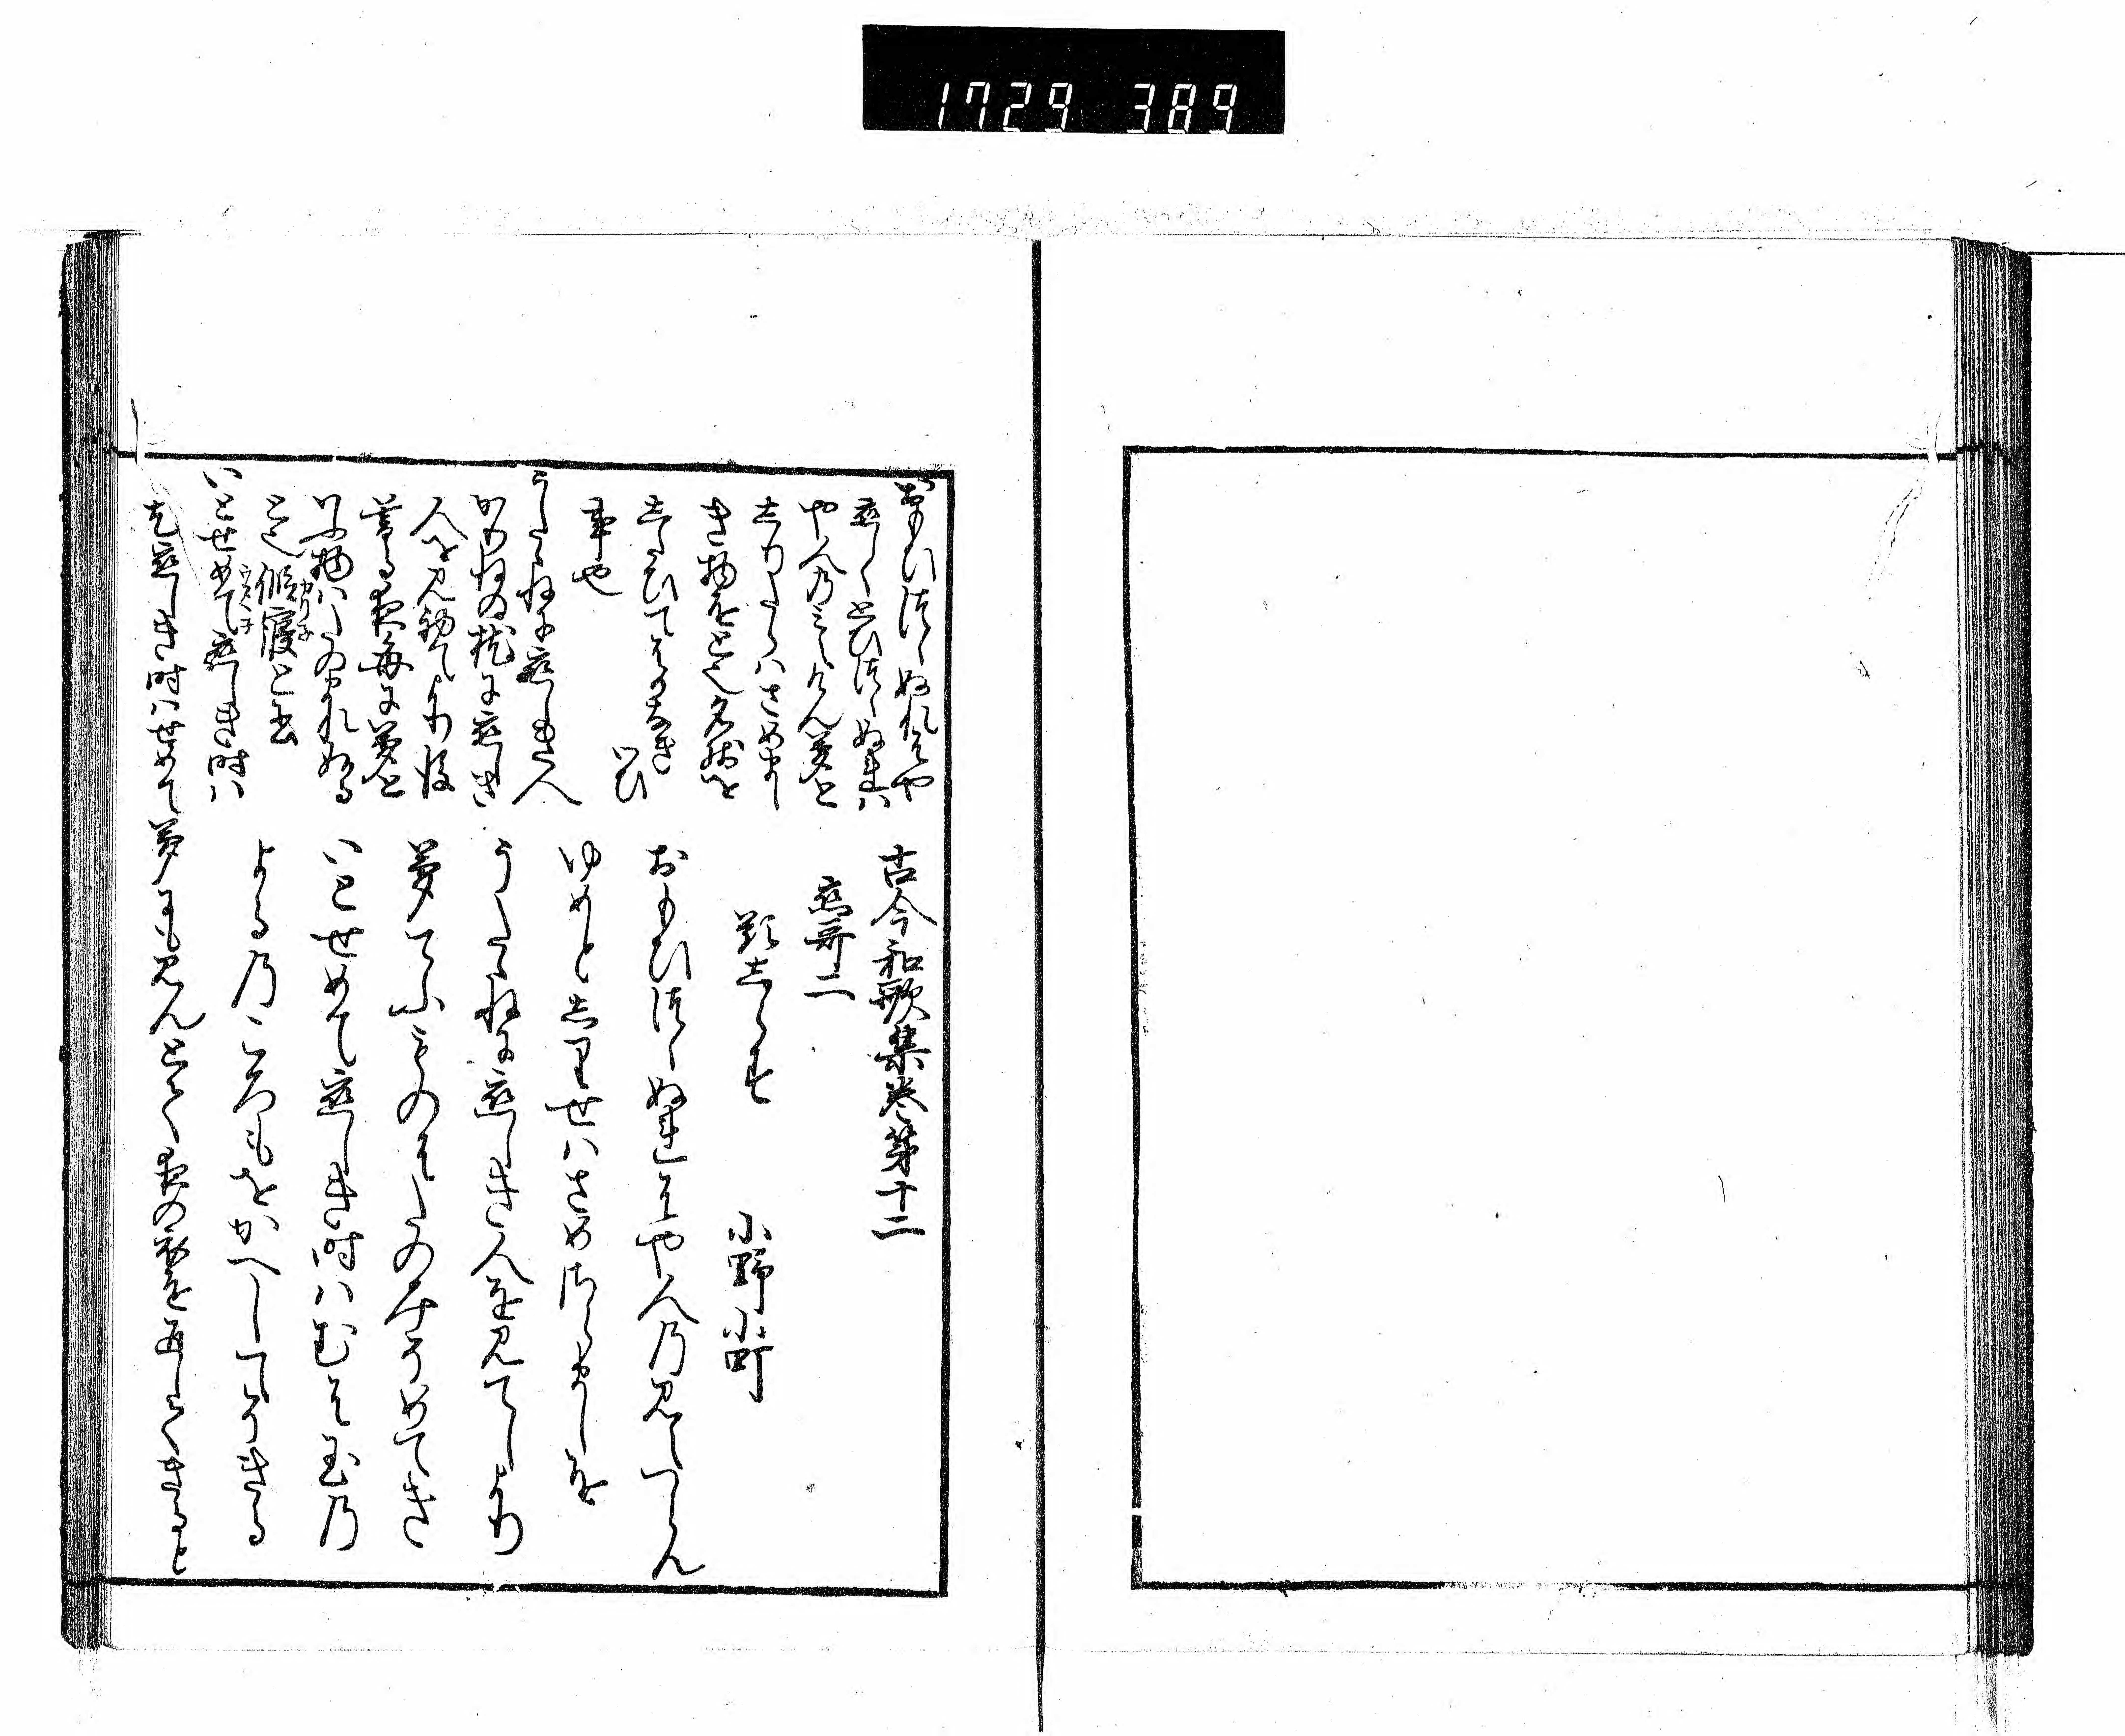 1729 389
古今和歌集巻第十二
恋哥二
題志らす
小野小町
おもひつゝぬれはや人乃見えつらん
ゆめと志りせはさめさらましを
うたゝねに恋しき人を見てしより
夢てふものはたのみそめてき
いとせめて恋しき時ハむは玉乃
よる乃ころもをかへしてそきる
おもひつゝぬれはや
恋しくとひつゝぬれハ
や人乃みえけん夢と
志りたらハさめまし
き物をと也名残を
したひてはかなき
いひ
事也
うたゝねに恋しき人
かりねの枕に恋しき
人を見初てより後
寝る夜毎に夢と
いふ物ハたのまれぬる
と也 仮寝と書
かりネ
うたゝネ
いとせめて恋しき時ハ
尤恋しき時ハせめて夢にも見んとて夜の衣を返してきると